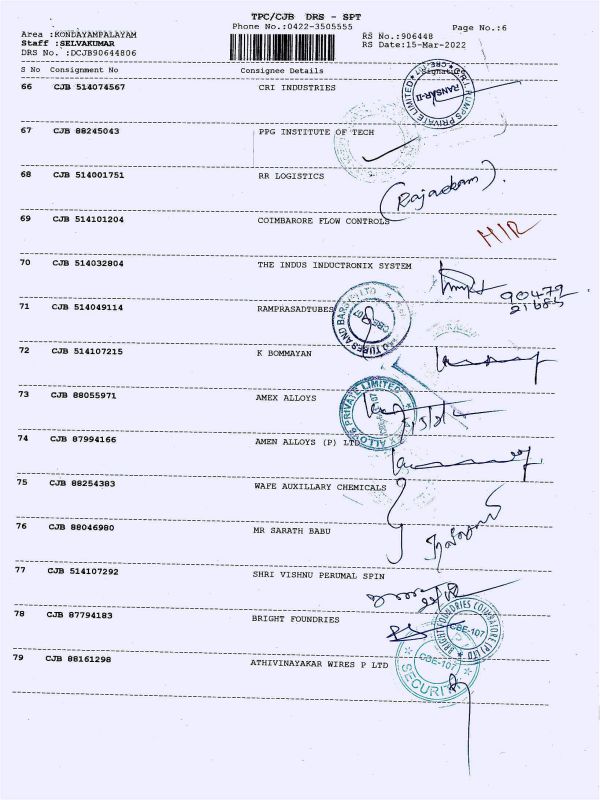 TPC/CJB DRS - SPT
Phone No.:0422-3505555
Page No.:6
Area :KONDAYAMPALAYAM
RS No.:906448
Staff :SELVAKUMAR
RS Date:15-Mar-2022
DRS No. :DCJB90644806
S No Consignment No Consignee Details Signature
66 CJB 514074567 CRI INDUSTRIES
C.R.I. PUMPS PRIVATE LIMITED
RANSAR-II
67 CJB 88245043 PPG INSTITUTE OF TECH
68 CJB 514001751 RR LOGISTICS
69 CJB 514101204 COIMBARORE FLOW CONTROLS
H/R
70 CJB 514032804 THE INDUS INDUCTRONIX SYSTEM
90479
71 CJB 514049114 RAMPRASADTUBES
TUBES AND BARS
72 CJB 514107215 K BOMMAYAN
73 CJB 88055971 AMEX ALLOYS
ALLOYS PRIVATE LIMITED
74 CJB 87994166 AMEN ALLOYS (P) LTD
75 CJB 88254383 WAFE AUXILLARY CHEMICALS
76 CJB 88046980 MR SARATH BABU
77 CJB 514107292 SHRI VISHNU PERUMAL SPIN
78 CJB 87794183 BRIGHT FOUNDRIES
BRIGHT FOUNDRIES COIMBATORE (P) LTD
CBE-107
79 CJB 88161298 ATHIVINAYAKAR WIRES P LTD
CBE-107
SECURITY